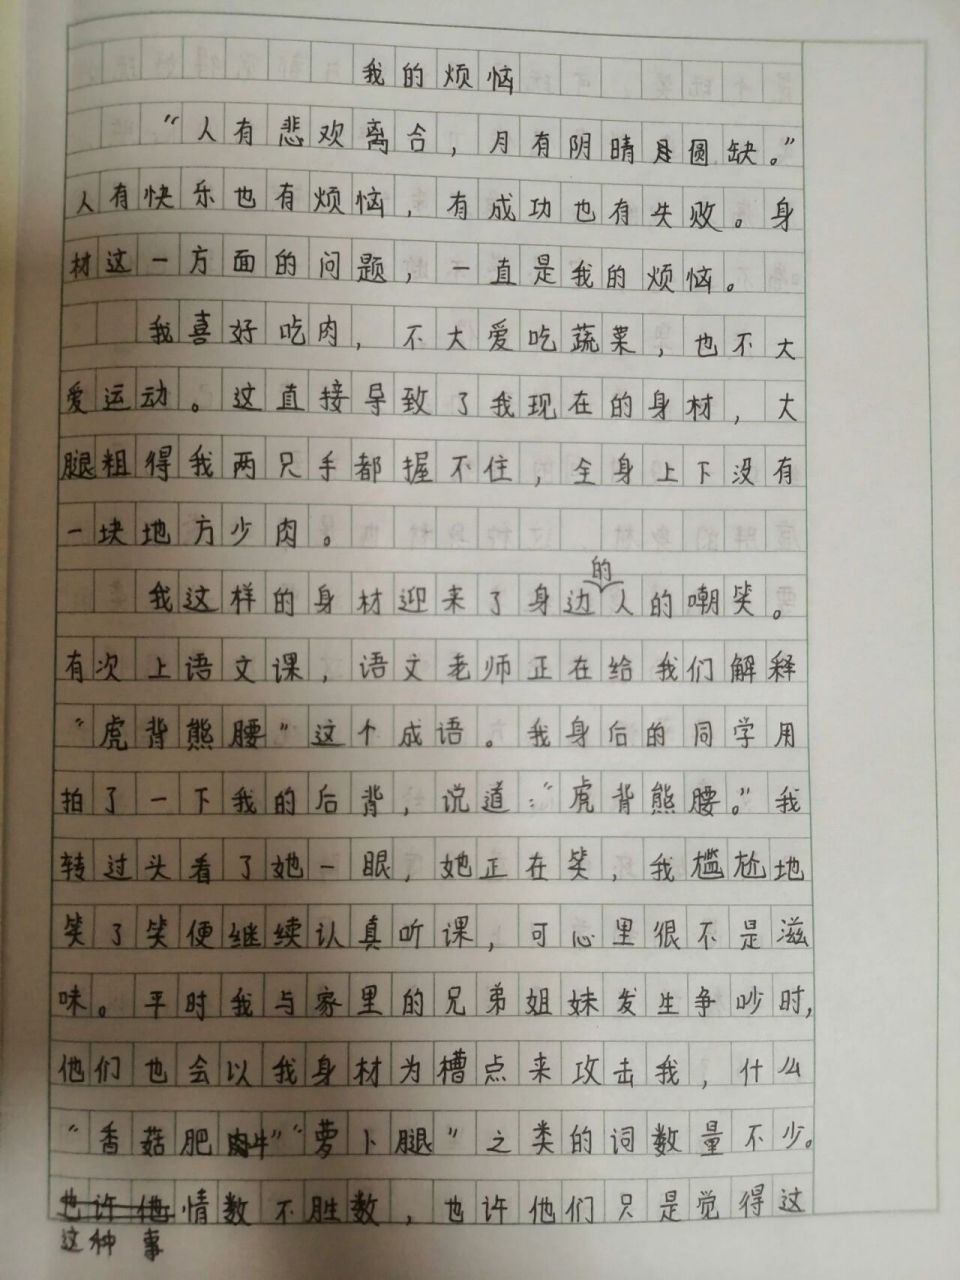 我的烦恼
“人有悲欢离合，月有阴晴圆缺。”
人有快乐也有烦恼，有成功也有失败。身
材这一方面的问题，一直是我的烦恼。
我喜好吃肉，不大爱吃蔬菜，也不大
爱运动。这直接导致了我现在的身材，大
腿粗得我两只手都握不住，全身上下没有
一块地方少肉。
我这样的身材迎来了身边的人的嘲笑。
有次上语文课，语文老师正在给我们解释
“虎背熊腰”这个成语。我身后的同学用
拍了一下我的后背，说道：“虎背熊腰。”我
转过头看了她一眼，她正在笑，我尴尬地
笑了笑便继续认真听课，可心里很不是滋
味。平时我与家里的兄弟姐妹发生争吵时，
他们也会以我身材为槽点来攻击我，什么
“香菇肥牛”“萝卜腿”之类的词数量不少。
情数不胜数，也许他们只是觉得这
这种事